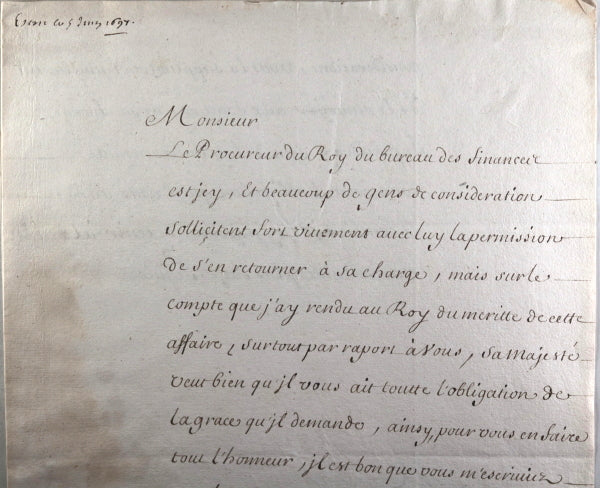 Monsieur
Le Procureur du Roy du bureau des finances
est jcy, Et beaucoup de gens de consideration
sollicitent fort viuement auec luy la permission
de s'en retourner à sa charge, mais sur le
compte que j'ay rendu au Roy du meritte de cette
affaire, surtout par raport à Vous, sa Majesté
veut bien qu'jl vous ait toutte l'obligation de
la grace qu'jl demande, ainsy, pour vous en faire
tout l'honneur, jl est bon que vous m'escriuiez